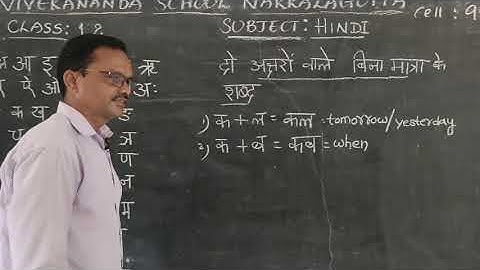 VIVEKANANDA SCHOOL NAKKALAGUTTA Cell : 9
CLASS: 1&2 SUBJECT: HINDI
अ आ इ ऋ
ऐ ओ अः
क ख ङ
च ञ
ण
न
म
दो अक्षरों वाले बिना मात्रा के
शब्द
1) क + ल = कल = tomorrow/yesterday
2) क + ब = कब = when